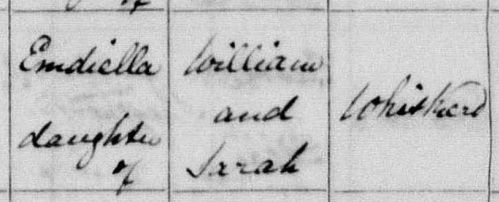 of
Emdiella
daughter
of
William
and
Sarah
Whiskerd